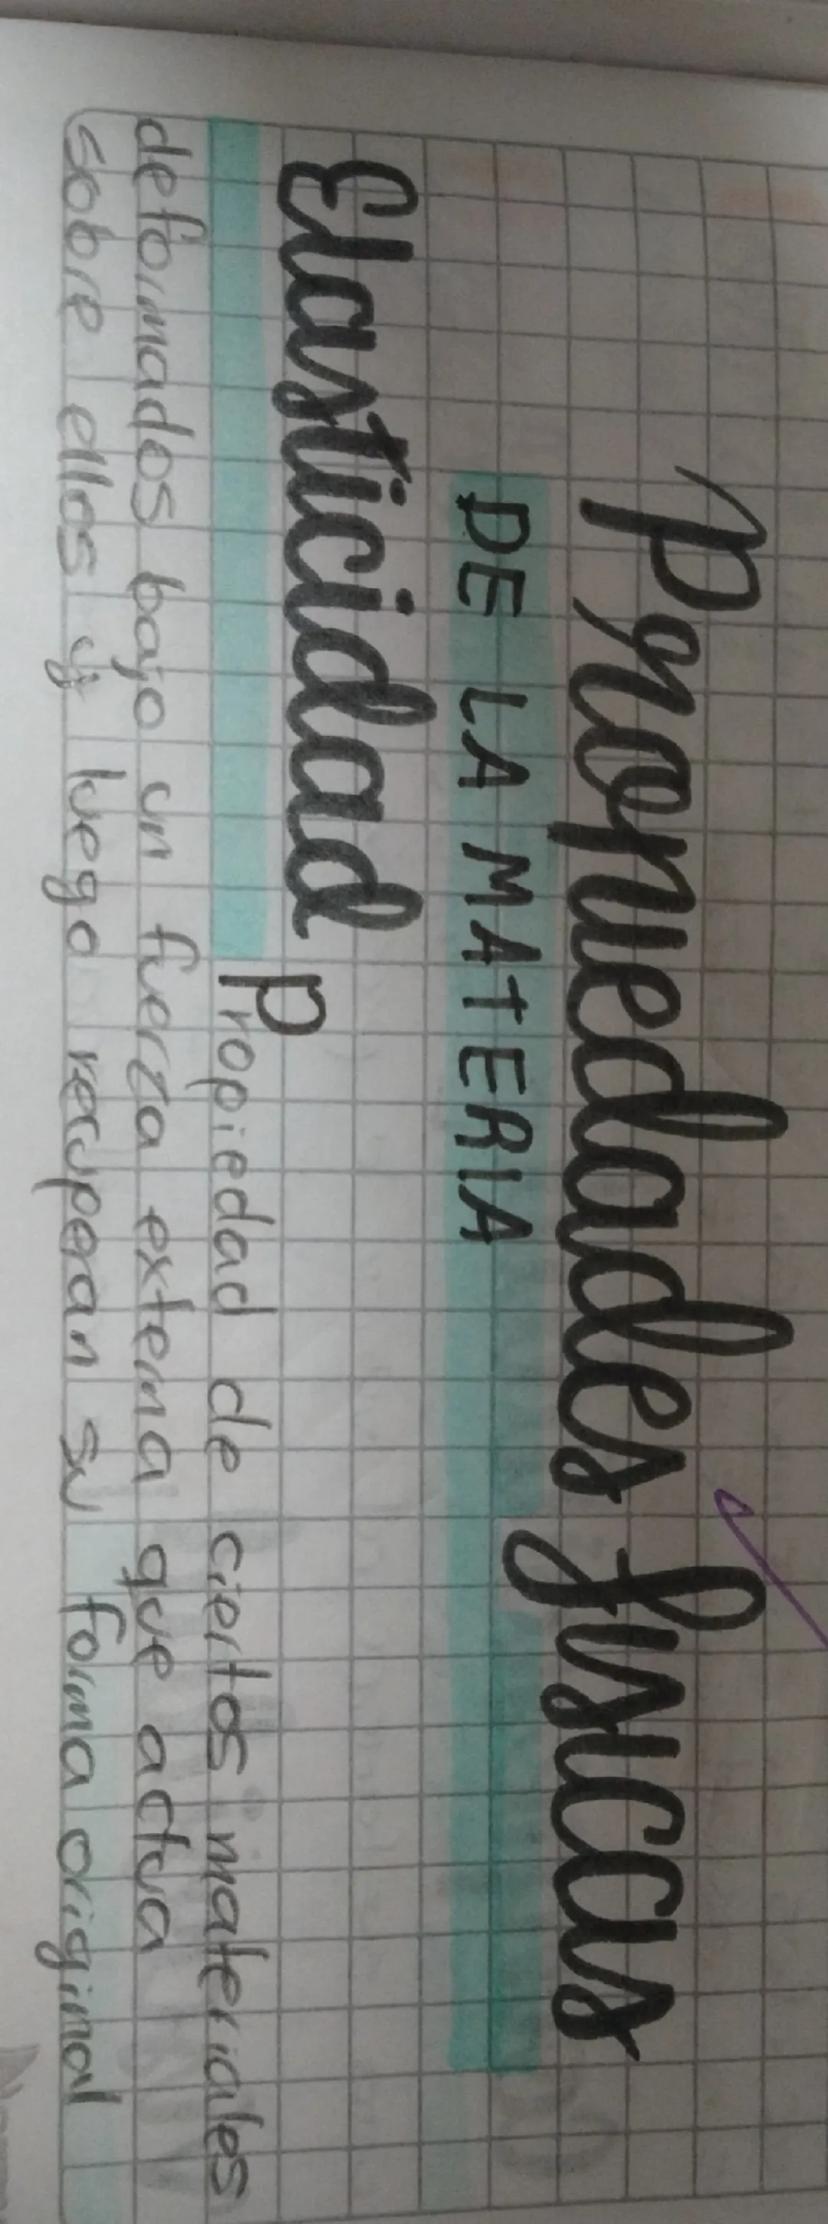 Propiedades físicas
DE LA MATERIA
Elasticidad
Propiedad de ciertos materiales
deformados bajo un fuerza externa que actua
sobre ellos y luego recuperan su forma original